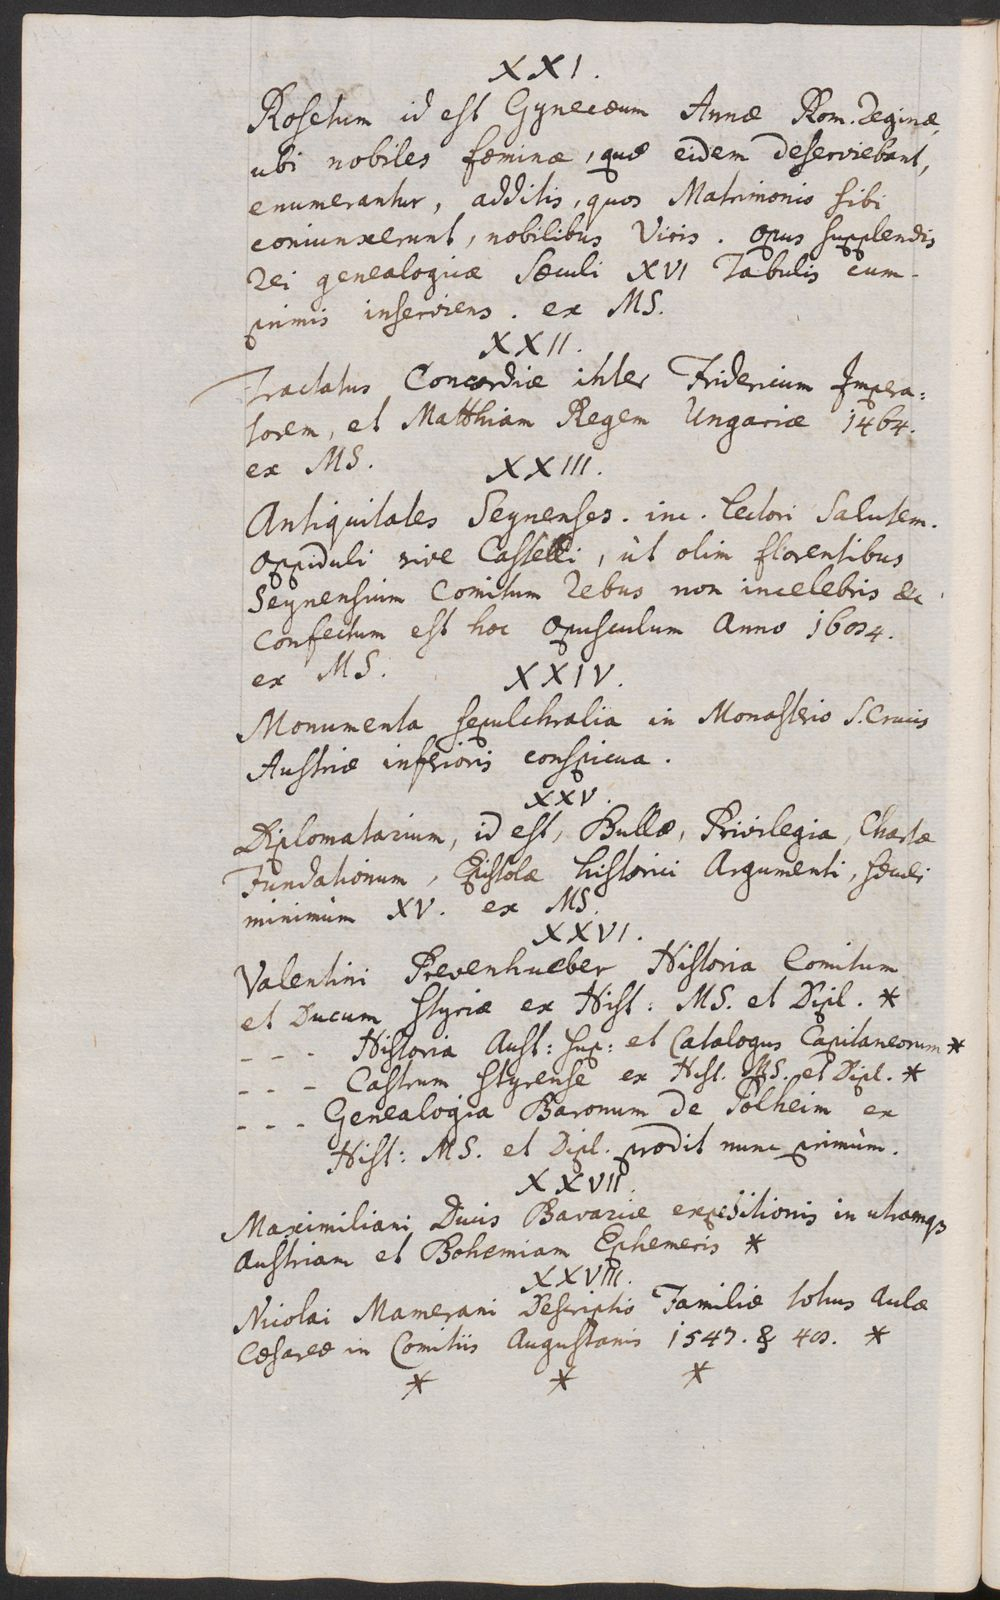 XXI.
Rosetum id est Gynecæum Annæ Rom. Reginæ,
ubi nobiles fœminæ, quæ eidem deserviebant,
enumerantur, additis, quos Matrimonio sibi
coniunxerunt, nobilibus Viris. opus supplendis
Rei genealogicæ Sæculi XVI Tabulis cum-
primis inserviens. ex MS.
XXII.
Tractatus Concordiæ inter Fridericum Impera:
torem, et Matthiam Regem Ungariæ 1464.
ex MS.
XXIII.
Antiquitates Seynenses. inc. Lectori Salutem.
Oppiduli sive Castelli, ùt olim florentibus
Seynensium Comitum rebus non incelebris &c
Confectum est hoc Opusculum Anno 1684.
ex MS.
XXIV.
Monumenta sepulchralia in Monasterio S. Crucis
Austriæ inferioris conspicua.
XXV.
Diplomatarium, id est, Bullæ, Privilegia, Chartæ
Fundationum, Epistolæ historici Argumenti, sæculi
minimùm XV. ex MS.
XXVI.
Valentini Prevenhueber Historia Comitum
et Ducum Styriæ ex Hist: MS. et Dipl. *
- - - Historia Aust: Sup: et Catalogus Capitaneorum *
- - - Castrum Styrense ex Hist. MS. et Dipl. *
- - - Genealogia Baronum de Polheim ex
Hist: MS. et Dipl. prodit nunc primùm.
XXVII.
Maximiliani Ducis Bavariæ expeditionis in utramqȝ
Austriam et Bohemiam Ephemeris *
XXVIII.
Nicolai Mamerani Descriptio Familiæ totius Aulæ
Cæsareæ in Comitiis Augustanis 1547. & 48. *
* * *